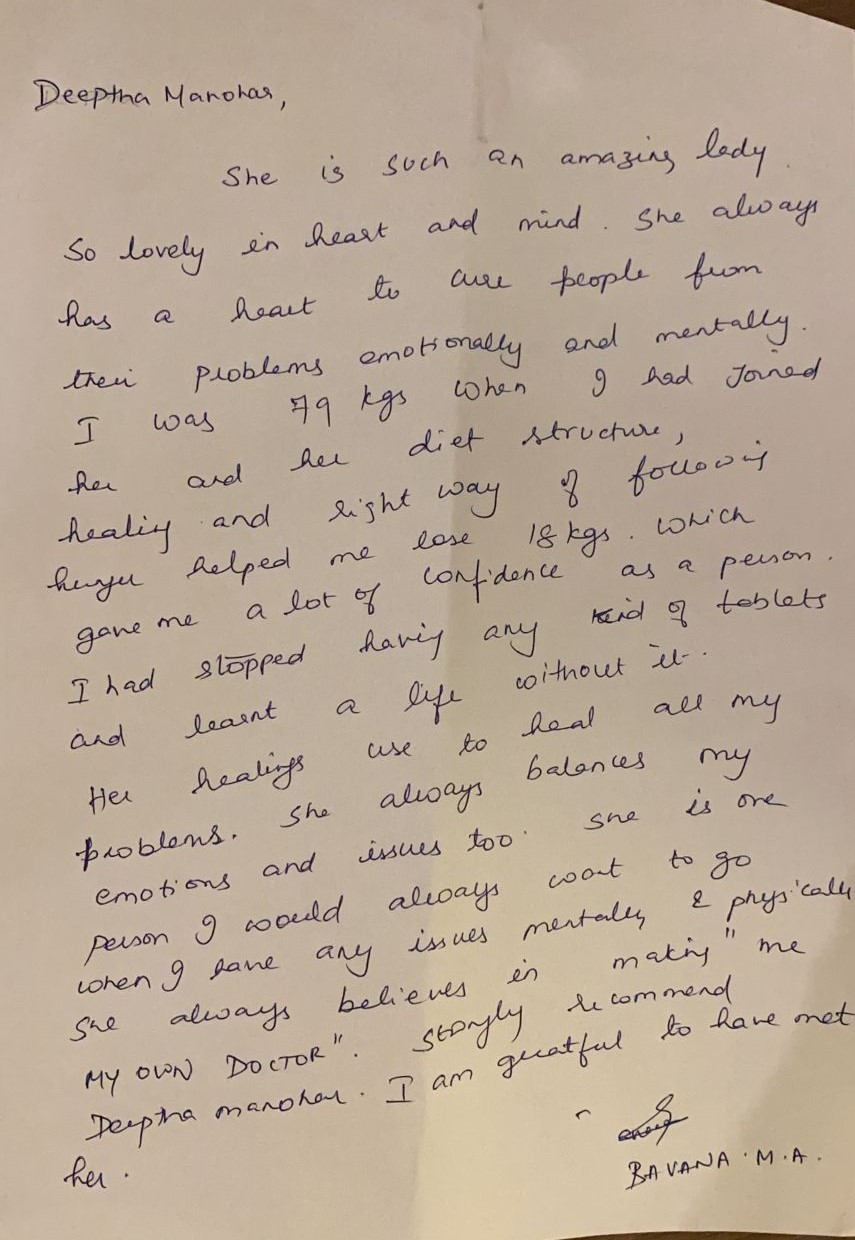 Deeptha Manohar,
She is such an amazing lady.
So lovely in heart and mind. She always
has a heart to cure people from
their problems emotionally and mentally.
I was 79 kgs when I had Joined
her and her diet structure,
healing and right way of following
hunger helped me lose 18 kgs. which
gave me a lot of confidence as a person.
I had stopped having any kind of tablets
and learnt a life without it.
Her healings use to heal all my
problems. She always balances my
emotions and issues too. She is one
person I would always want to go
when I have any issues mentally & physically
She always believes in making "me
MY OWN DOCTOR". Stongly recommend
Deeptha manohar. I am greatful to have met
her.
BAVANA. M.A.